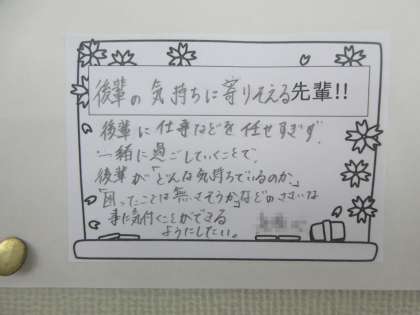 後輩の気持ちに寄りそえる先輩!!
後輩に仕事などを任せすぎず、
一緒に過ごしていくことで、
後輩が「どんな気持ちでいるのか、」
「困ったことは無さそうか」などのささいな
事に気付くことができる
ようにしたい。